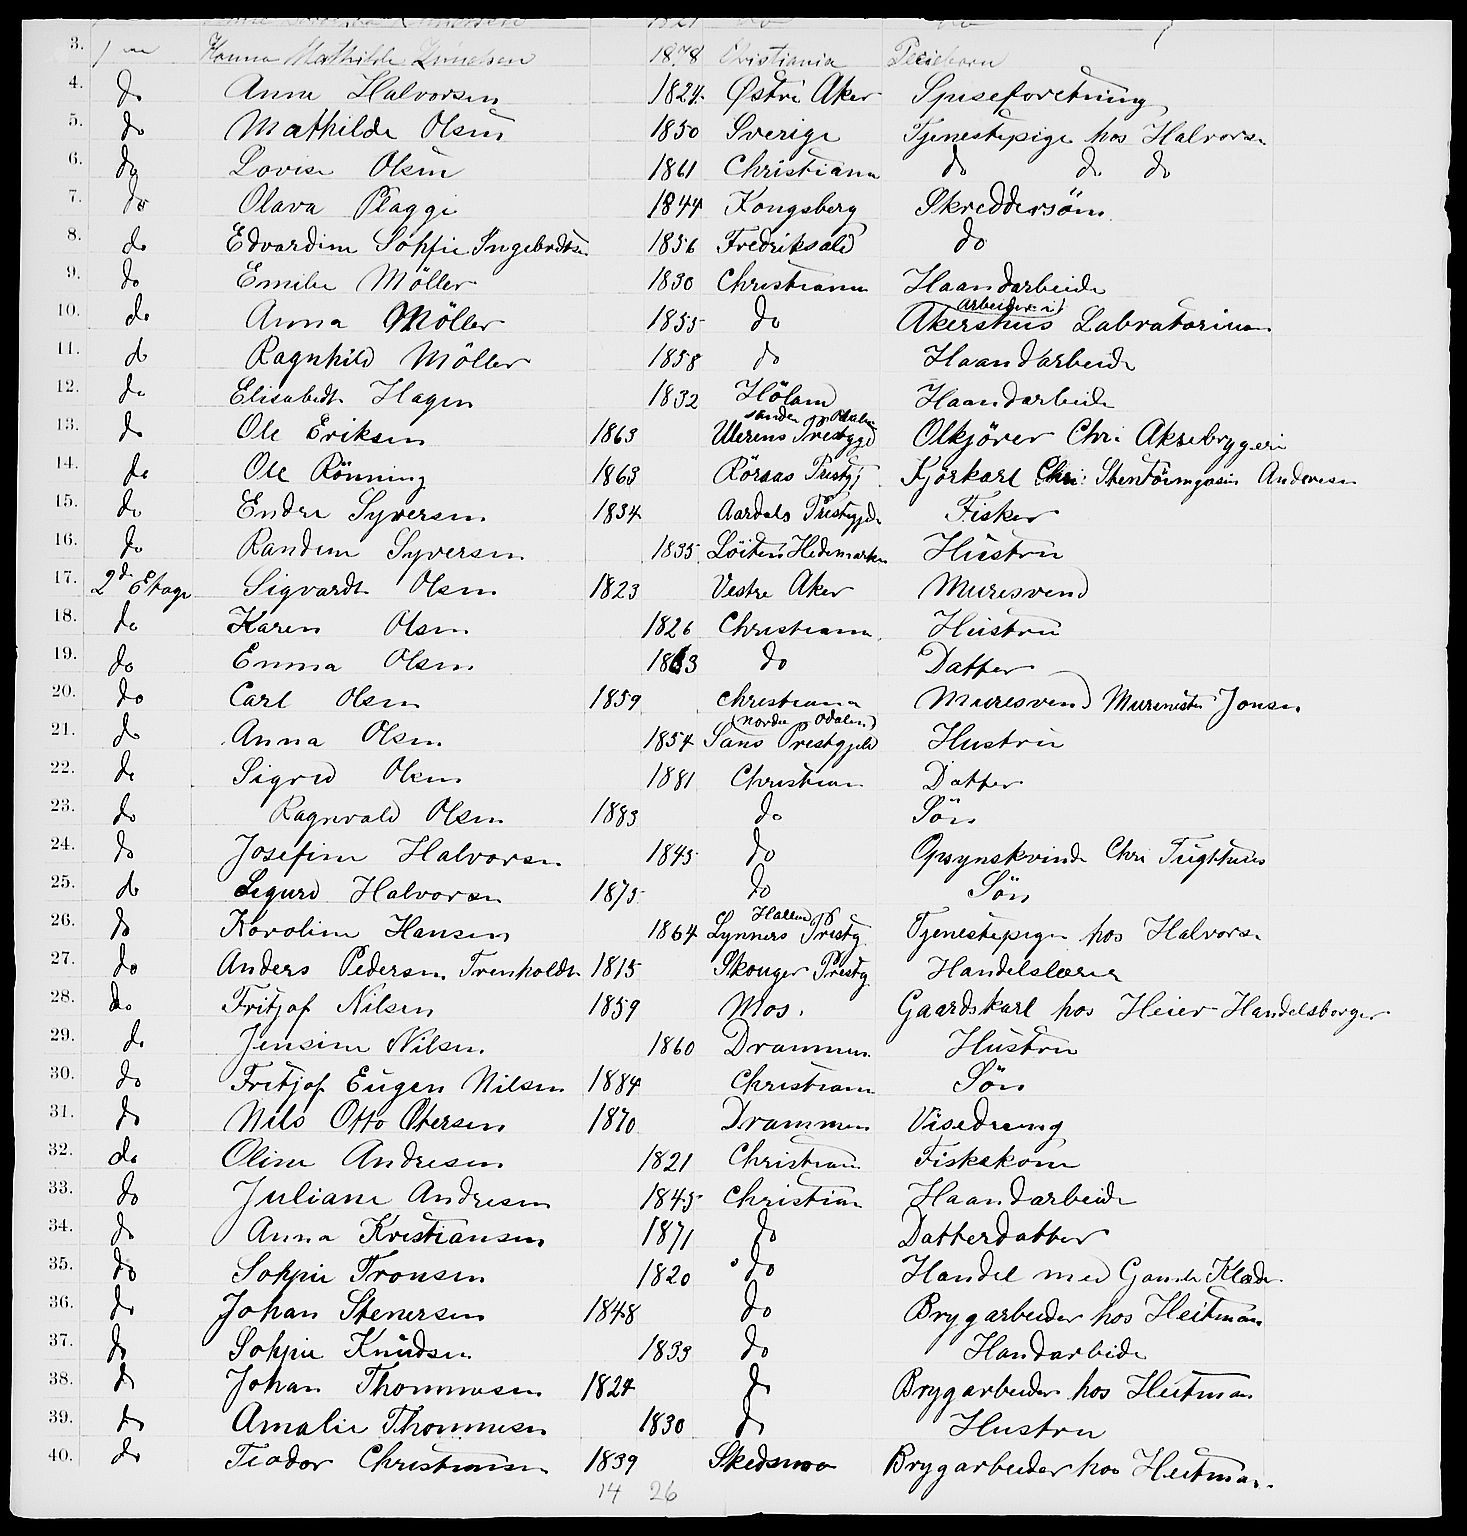 3. Hanna Mathilde Knudsen 1878 Christiania
4. do Anna Halvorsen 1824 Østre Aker Spiseforetning
5. do Mathilde Olsen 1850 Sverige Tjenestepige hos Halvorsen
6. do Lovise Olsen 1861 Christiania do do do
7. do Olava Plaggi 1844 Kongsberg Skreddersöm
8. do Edvardine Sohpie Ingebretsen 1856 Fredriksald do
9. do Emilie Möller 1830 Christiania Haandarbeide
arbeider i
10. do Anna Möller 1855 do Akershus Labratorium
11. do Ragnhild Möller 1858 do Haandarbeide
12. do Elisabedt Hagen 1832 Höland Haandarbeide
13. do Ole Eriksen 1863 Ulerens Prestgjd Olkjörer Chri Aksebryggeri
14. do Ole Rönning 1863 Röraas Prestgj Kjörkarl Chri: Andersen
15. do Endre Syversen 1834 Aardals Prestgjeld Fisker
16. do Randine Syversen 1835 Löiten Hedemarken Hüstru
17. 2d Etage Sigvardt Olsen 1823 Vestre Aker Muresvend
18. do Karen Olsen 1826 Christiania Hüstru
19. do Emma Olsen 1863 do Datter
20. do Carl Olsen 1859 Christiania Muresvend Murmester Jonsen
nordre Odalen
21. do Anna Olsen 1854 Sans Prestgjeld Hustru
22. do Sigrid Olsen 1881 Christian Datter
23. do Ragnvald Olsen 1883 do Sön
24. do Josefine Halvorsen 1845 do Opsynskvinde Chri Tugthuus
25. do Sigurd Halvorsen 1875 do Sön
26. do Karoline Hansen 1864 Lynners Prestg Tjenestepige hos Halvorsen
27. do Anders Pedersen Trenholdt 1815 Skouger Prestg Handelslærer
28. do Fritjof Nilsen 1859 Mos. Gaardskarl hos Heier Handelsborger
29. do Jensine Nilsen 1860 Drammen Hüstru
30. do Fritjof Eügen Nilsen 1884 Christiania Sön
31. do Nils Otto Petersen 1870 Drammen Visedreng
32. do Oline Andresen 1821 Christiania Fiskekone
33. do Juliane Andresen 1845 Christian Haandarbeide
34. do Anna Kristiansen 1871 do Datterdatter
35. do Sohpie Tronsen 1820 do Handel med Gamle Klæder
36. do Johan Stenersen 1848 do Brygarbeider hos Heitman
37. do Sohpie Knüdsen 1833 do Handarbeide
38. do Johan Thommesen 1824 do Brygarbeider hos Heitman
39. do Amalie Thommesen 1830 do Hustru
40. do Teodor Christiansen 1839 Skedsmo Brygarbeider hos Heitman.
14 26